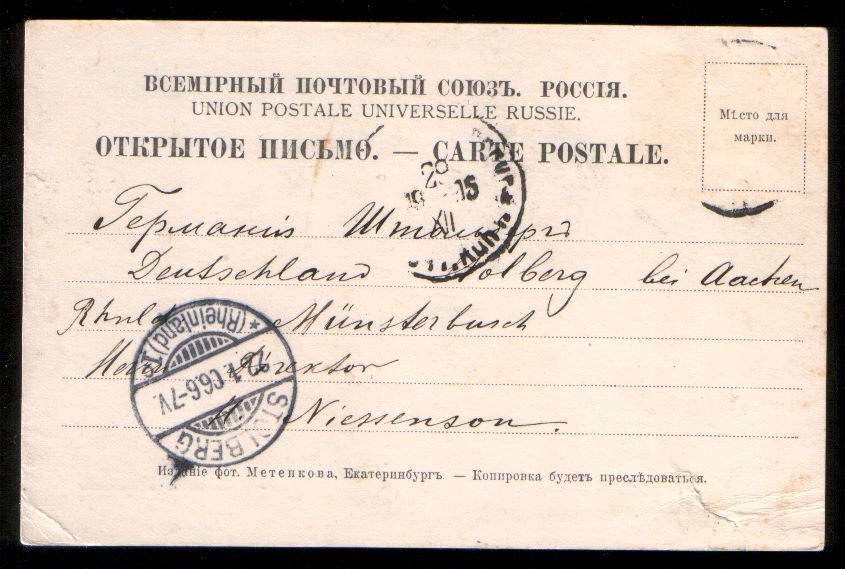 ВСЕМІРНЫЙ ПОЧТОВЫЙ СОЮЗЪ. РОССІЯ.
UNION POSTALE UNIVERSELLE RUSSIE.
ОТКРЫТОЕ ПИСЬМО. — CARTE POSTALE.
Мѣсто для
марки.
28
19 15
XII
Германія
Deutschland Stolberg bei Aachen
Münsterbusch
Herrn Direktor
H Niessenson.
STOLBERG
(Rheinland) 1a
2.1.06.6-7V.
Изданіе фот. Метенкова, Екатеринбургъ. — Копировка будетъ преслѣдоваться.